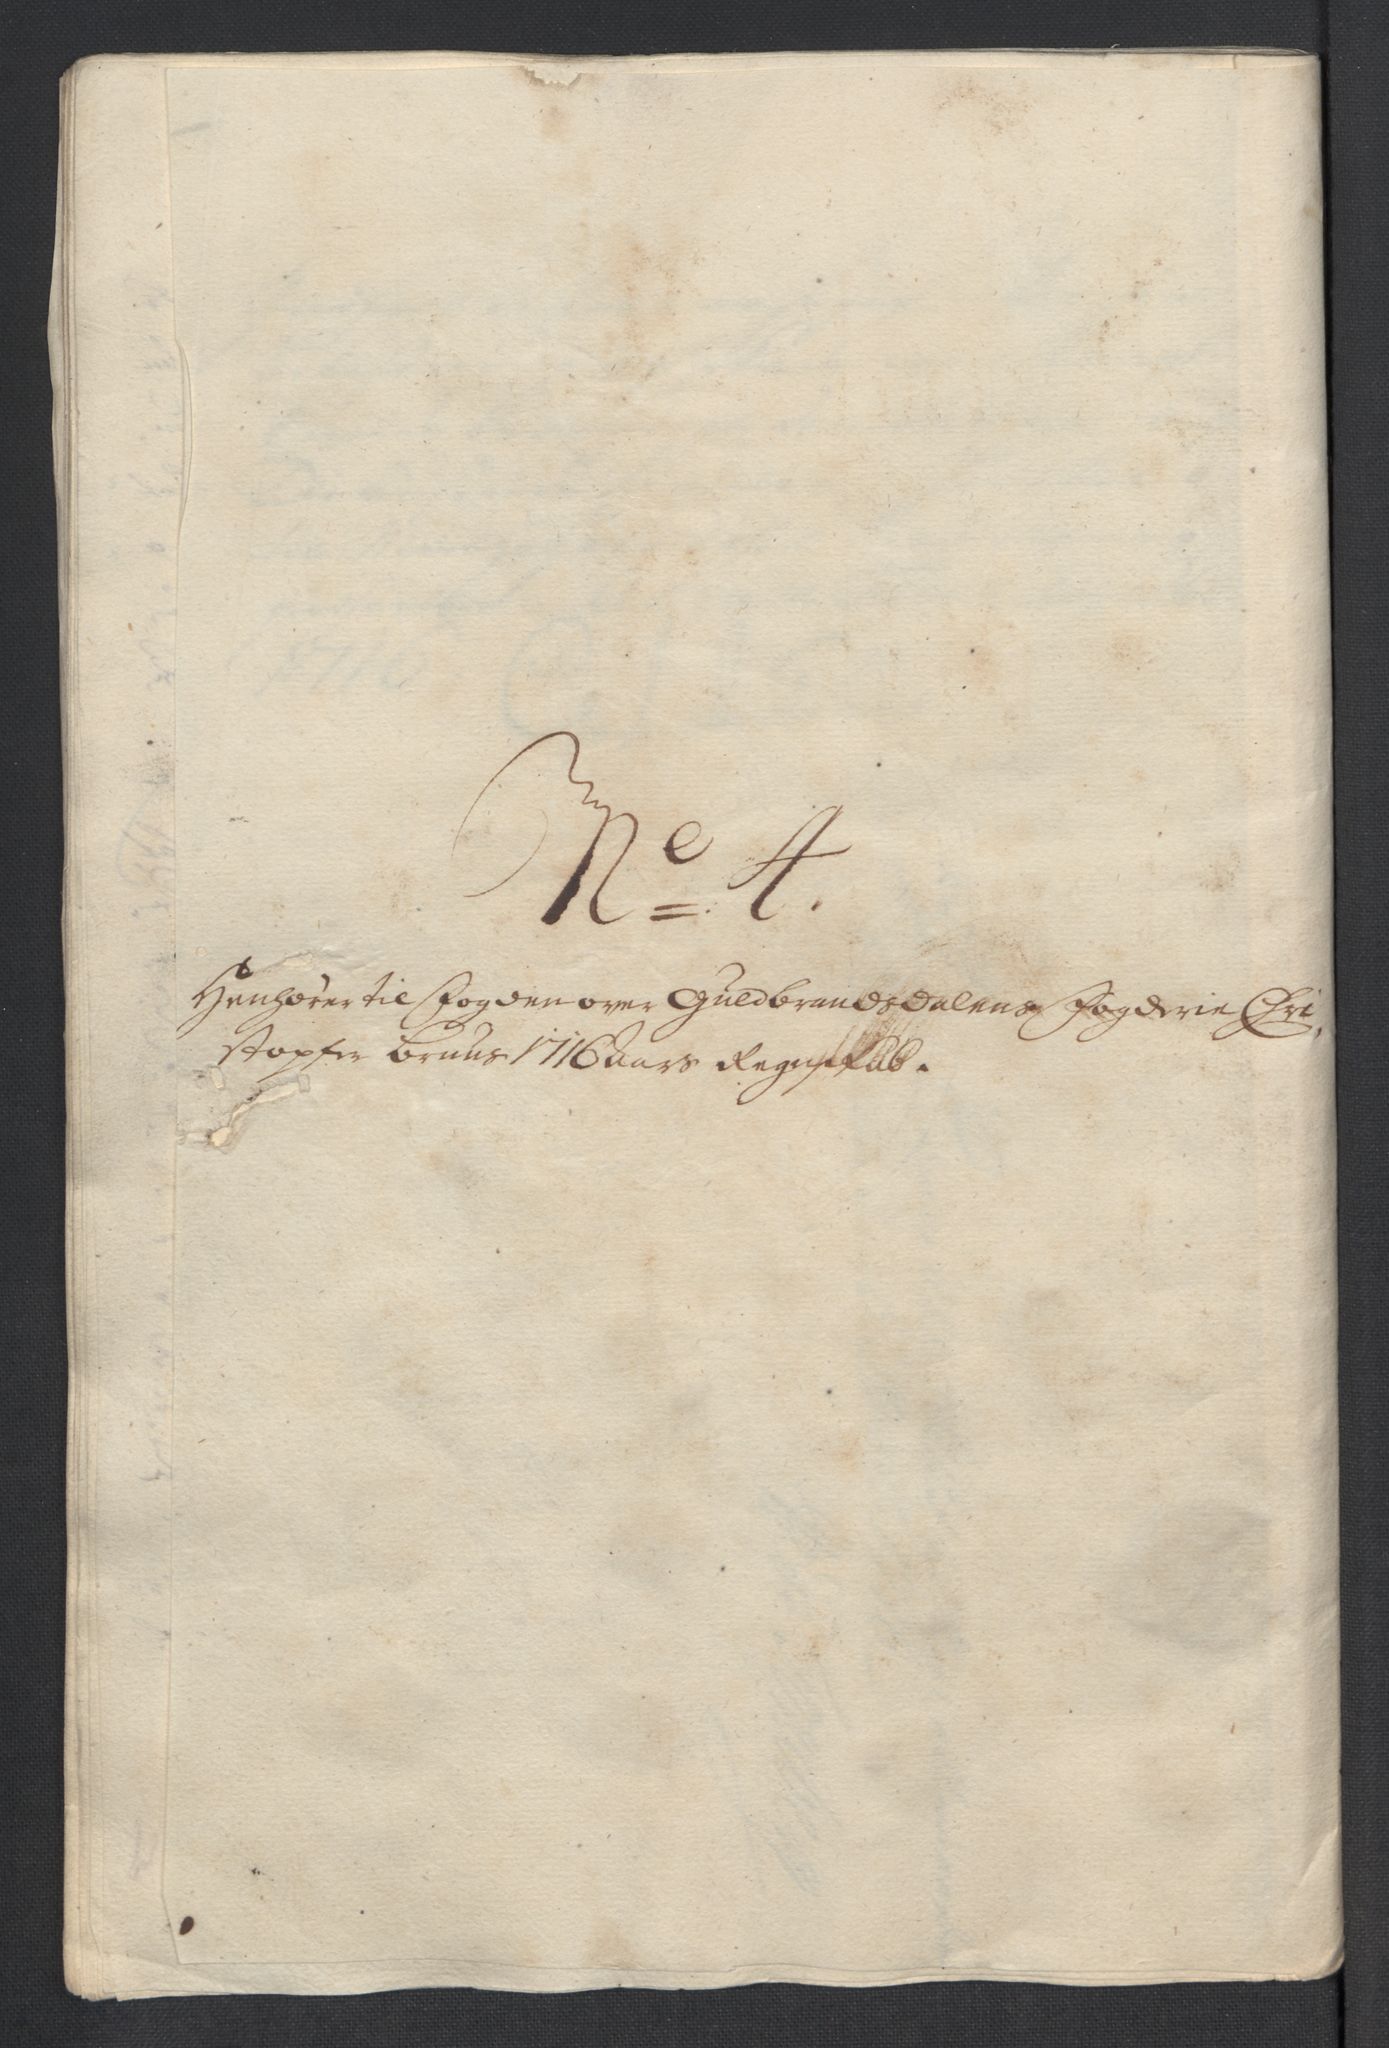 No 4.
Henhører til Fogden over Guldbrandsdalens Fogderie Chri,
stopfer Bruus 1716 Aars Regnskab.